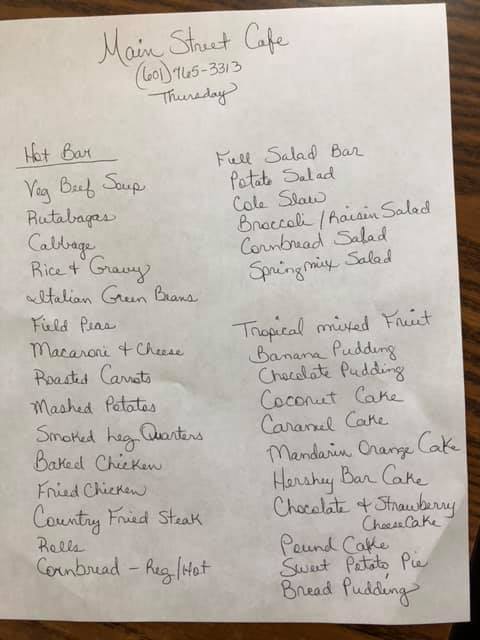 Main Street Cafe
(601) 765-3313
Thursday
Hot Bar
Veg Beef Soup
Rutabagas
Cabbage
Rice & Gravy
Italian Green Beans
Field Peas
Macaroni & Cheese
Roasted Carrots
Mashed Potatos
Smoked Leg Quarters
Baked Chicken
Fried Chicken
Country Fried Steak
Rolls
Cornbread - Reg/Hot
Full Salad Bar
Potato Salad
Cole Slaw
Broccoli/Raisin Salad
Cornbread Salad
Springmix Salad
Tropical mixed Fruit
Banana Pudding
Chocolate Pudding
Coconut Cake
Caramel Cake
Mandarin Orange Cake
Hershey Bar Cake
Chocolate & Strawberry
CheeseCake
Pound Cake
Sweet Potato Pie
Bread Pudding